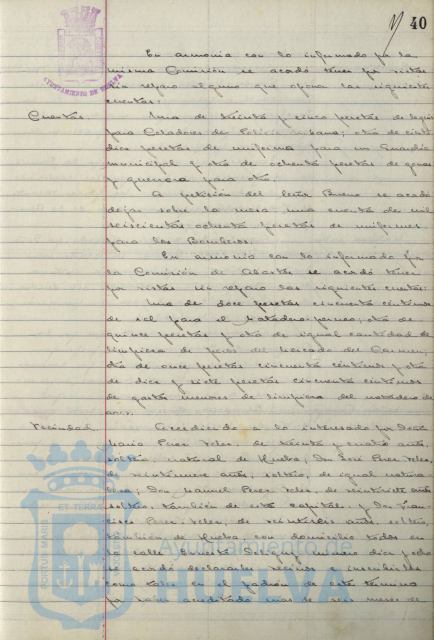 40
AYUNTAMIENTO DE HUELVA
En armonía con lo informado por la
misma Comisión se acordó tener por vistas
sin reparo alguno que oponer las siguientes
cuentas:
Cuentas. Una de treinta y cinco pesetas de
para Celadores de Policía urbana; otra de
diez pesetas de uniforme para un Guardia
municipal y otra de ochenta pesetas de
y guerrera para otro.
A petición del Señor Bueno se acordó
dejar sobre la mesa una cuenta de mil
seiscientas ochenta pesetas de uniformes
para los Bomberos.
En armonía con lo informado por
la Comisión de Abastos se acordó tener
por vistas sin reparo las siguientes cuentas:
Una de doce pesetas cincuenta céntimos
de sal para el Matadero; otra de
quince pesetas y otra de igual cantidad de
limpieza de pozos del mercado del Carmen;
otra de once pesetas cincuenta céntimos y otra
de diez y siete pesetas cincuenta céntimos
de gastos menores de limpieza del matadero de
Vecindad. Accediendo a lo interesado por
María Perez de treinta y cuatro años,
soltero, natural de Huelva; Don José Perez
de veintinueve años, soltero, de igual natura-
leza; Don Manuel Perez de veintisiete años
soltero, también de esta capital, y Don Fran-
cisco Perez de años, soltero,
también de Huelva con domicilio todos en
la calle número diez y ocho
se acordó declararles vecinos e inscribirlos
como tales en el padrón de este término
por haber acreditado mas de seis meses de
PORTUS MARIS ET TERRAE
Ayuntamiento de
HUELVA